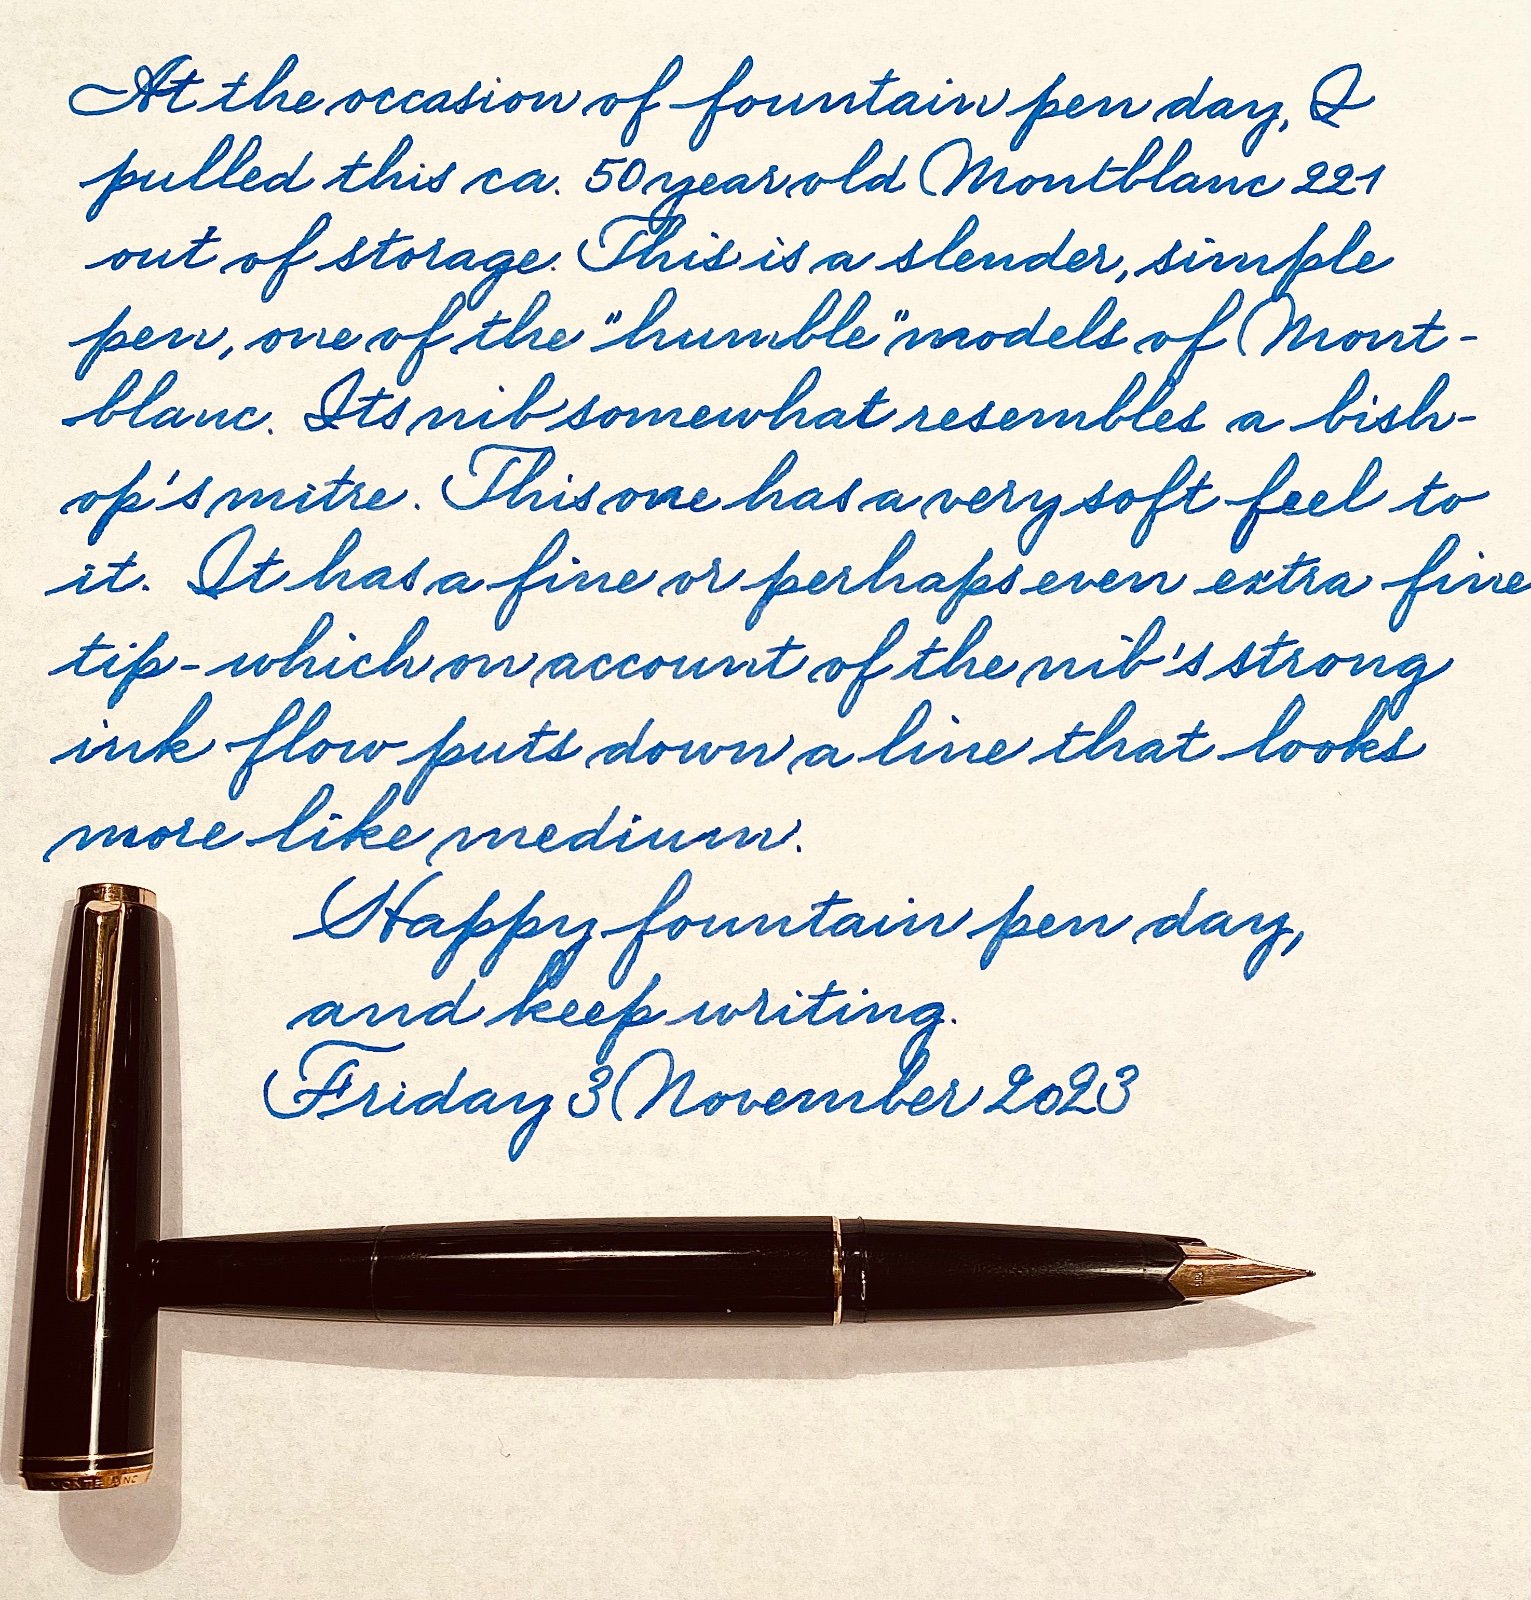 At the occasion of fountain pen day, I
pulled this ca. 50 year old Montblanc 221
out of storage. This is a slender, simple
pen, one of the "humble" models of Mont-
blanc. Its nib somewhat resembles a bish-
op's mitre. This one has a very soft feel to
it. It has a fine or perhaps even extra fine
tip - which on account of the nib's strong
ink flow puts down a line that looks
more like medium.
Happy fountain pen day,
and keep writing.
Friday 3 November 2023